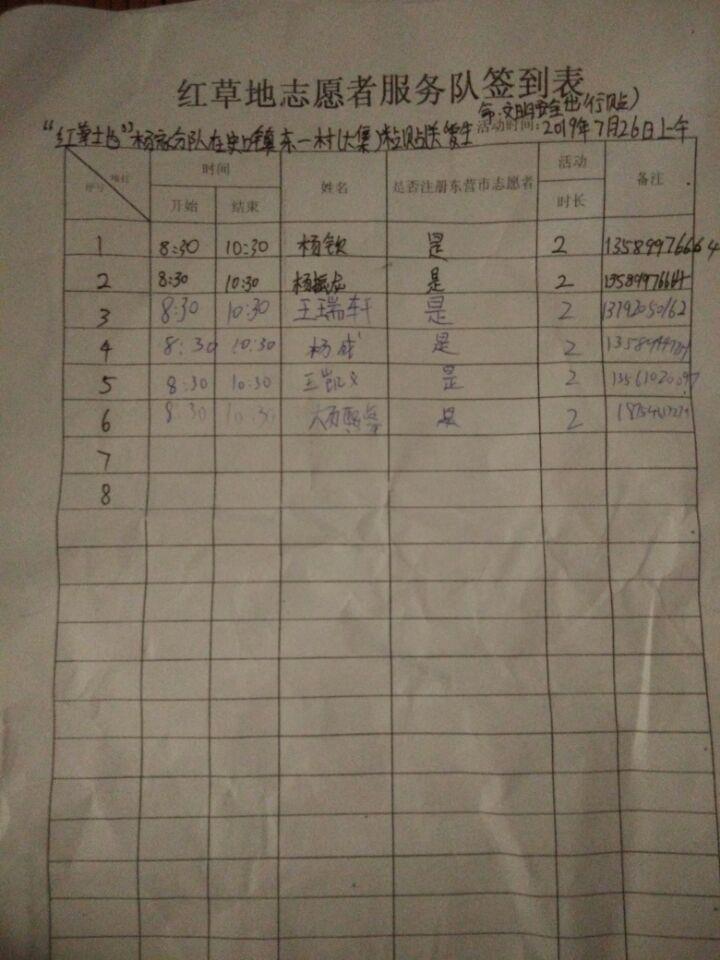 红草地志愿者服务队签到表
命·文明安全出行贴点)
"红草士官"杨家分队在史口镇东一村(大集)粘贴送"爱生 活动时间:2019年7月26日上午
序号 项目 时间 姓名 是否注册东营市志愿者 活动 备注
开始 结束 时长
1 8:30 10:30 杨钦 是 2 13589976664
2 8:30 10:30 杨振龙 是 2
3 8:30 10:30 王瑞轩 是 2 13792050162
4 8:30 10:30 杨成 是 2
5 8:30 10:30 王凯文 是 2
6 8:30 10:30 是 2
7
8